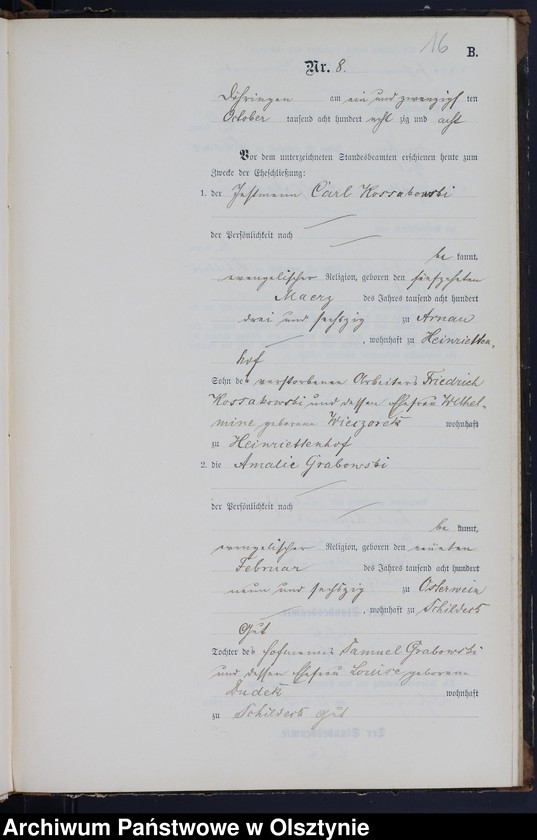 16
B.
Nr. 8.
Döhringen am ein und zwanzigsten
October tausend acht hundert acht zig und acht
Vor dem unterzeichneten Standesbeamten erschienen heute zum
Zwecke der Eheschließung:
1. der Instmann Carl Kossakowski
der Persönlichkeit nach
be kannt,
evangelischer Religion, geboren den fünfzehnten
Maerz des Jahres tausend acht hundert
drei und sechszig zu Arnau
, wohnhaft zu Heinrietten-
hof
Sohn des verstorbenen Arbeiters Friedrich
Kossakowski und dessen Ehefrau Wilhel-
mine geborene Wieczorek wohnhaft
zu Heinriettenhof
2. die Amalie Grabowski
der Persönlichkeit nach
be kannt,
evangelischer Religion, geboren den neunten
Februar des Jahres tausend acht hundert
neun und sechszig zu Osterwein
, wohnhaft zu Schilders
Gut
Tochter des Hofmannes Samuel Grabowski
und dessen Ehefrau Louise geborene
Dudek wohnhaft
zu Schilders gut
Archiwum Państwowe w Olsztynie